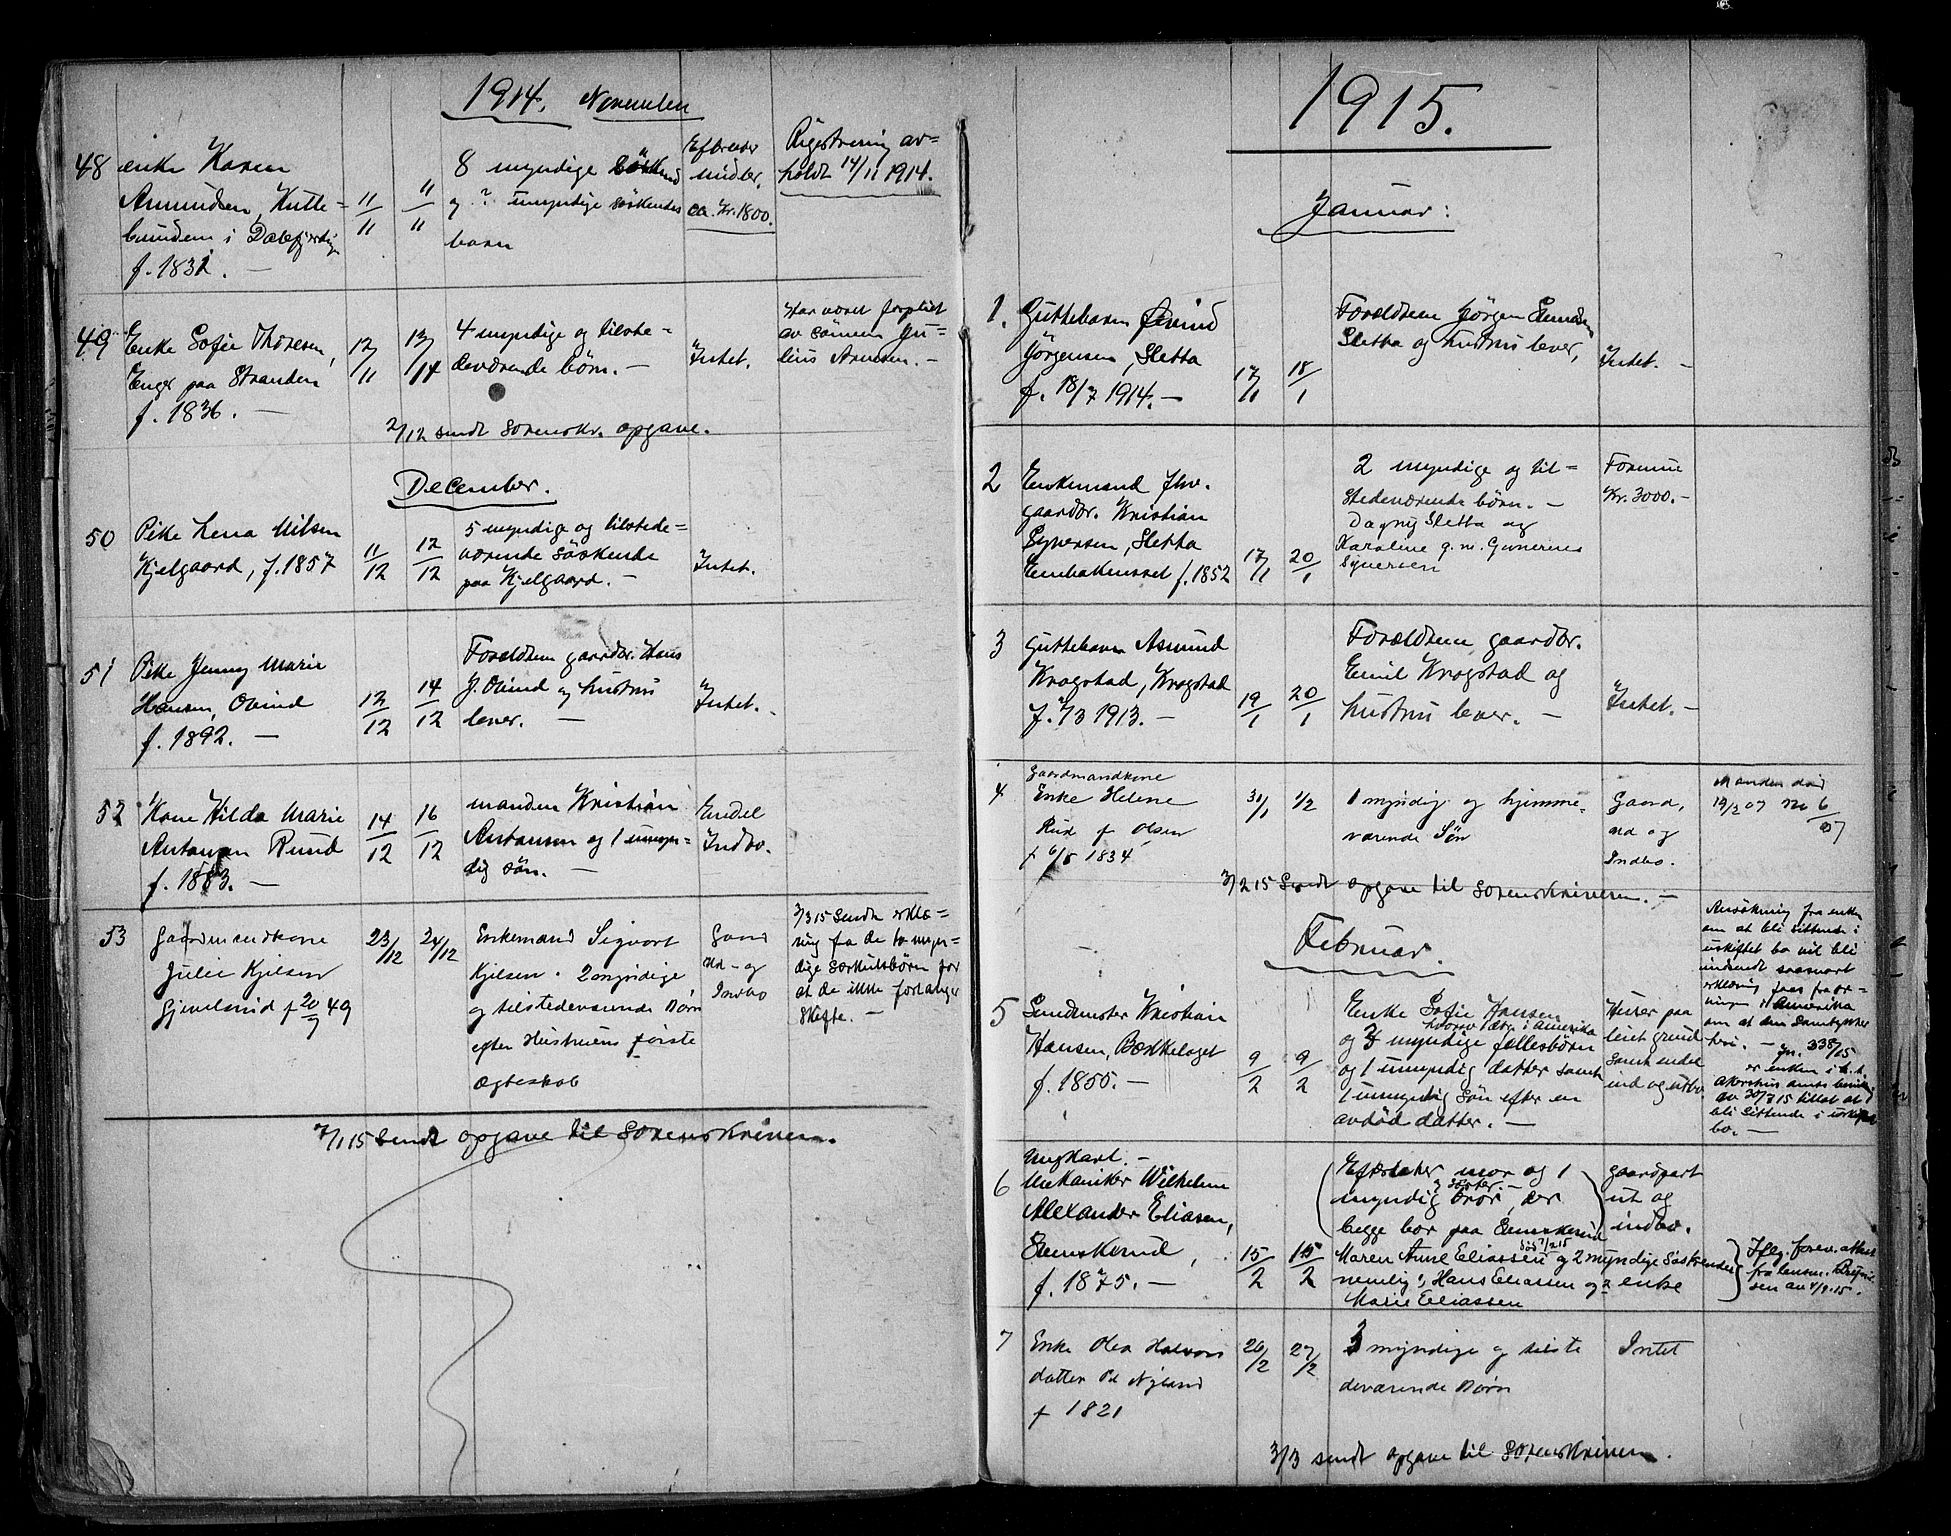 1914. November
48 enke Karen
Amundsen, Hytte-
bunden i
f. 1832. —
11/11
11/11
8 myndige
og ? umyndige søskendes
barn
midler,
ca. Kr. 1800.
Registrering av-
holdt 14/11 1914.
49 Enke Sofie Thoresen,
Enger paa Stranden
f. 1836. —
12/11
13/14
4 myndige og tilste-
deværende börn. —
Intet.
Har været forpleiet
av sönnen Ju-
lius Arnesen. —
2/12 sendt Sorenskr. opgave.
December.
50 Pike Lena Nilsen
Kjelgaard, f. 1857
11/12
12/12
5 myndige og tilstede-
værende söskende
paa Kjelgaard. —
Intet.
51 Pike Jenny Marie
Hansen, Owind
f. 1892. —
12/12
14/12
Forældrene gaardbr. Hans
J. Owind og hustru
lever. —
Intet.
52 Kone Hilda Marie
Antonsen Rund
f. 1883. —
14/12
16/12
manden Kristian
Antonsen og 1 umyn-
dig sön. —
Endel
Indbo.
53 Gaardmandkone
Julie Kjelsen
f 20/9 49
23/12
24/12
Enkemand Sigvart
Kjelsen. 2 myndige
og tilstedeværende Börn
efter Hustruens første
Ægteskab
Gaard
Ud- og
Indbo
3/3 15 Sendte erklæ-
ring fra de to myn-
dige særkulsbörn for
at de ikke forlanger
Skifte. —
7/1 15 Sendt opgave til Sorenskriveren.
1915.
Januar:
1. Guttebarn Øivind
Jörgensen, Sletta
f. 18/7 1914. —
17/1
18/1
Forældrene Jørgen
Sletta og hustru lever,
Intet. —
2 Enkemand fhv.
gaardbr. Kristian
Syversen, Sletta
f. 1852
17/1
20/1
2 myndige og til-
stedeværende börn. —
Dagny Sletta og
Karoline g. m.
Syversen
Formue
Kr. 3000. —
3 Guttebarn Asmund
Krogstad, Krogstad
f. 1/3 1913. —
19/1
20/1
Forældrene gaardbr.
Emil Krogstad og
hustru lever. —
Intet. —
4 Gaardmandkone
Enke Helene
Rud f Olsen
f 6/5 1834
31/1
1/2
1 myndig og hjemme-
værende Sön
Gaard,
ud og
Indbo.
Manden död
19/3 07 No 6/07
3/2 15 Sendt opgave til Sorenskriveren. —
Februar.
5 Kristian
Hansen, Bækkelaget
f. 1855. —
9/2
9/2
Enke Sofie Hansen
hvorav 1 i Amerika
og 3 myndige fællesbörn
og 1 umyndig datter samt
1 umyndig sön efter en
avdöd datter. —
Huser paa
leiet grund
samt endel
ind og utbo.
Ansökning fra enken
om at bli sittende i
uskiftet bo vil bli
indsendt saasnart
erklæring faaes fra
i Amerika
om at den samtykker
heri. — Jn. 338/15
er enken i h. t.
Akershus amts bevilg
av 30/7 15 tillat at
bli sittende i uskiftet
bo. —
6 Ungkarl. —
Mekaniker Wilhelm
Alexander Eliasen,
Eunskerud,
f. 1875. —
15/2
15/2
(Efterlater mor og 1
søster. —
myndig bror, der
begge bor paa Eunskerud
Död 7/2 15
Maren Anne Eliassen og 2 myndige Søskende
nemlig: Hans Eliassen og enke
Marie Eliassen
gaardpart
ut og
indbo.
fra lensm.
sen av 4/9. 15.
7 Enke Olea Halvors
datter Nyland
f 1821
26/2
27/2
3 myndige og tilste
deværende Börn
Intet
3/3 sendt opgave til Sorenskriveren.